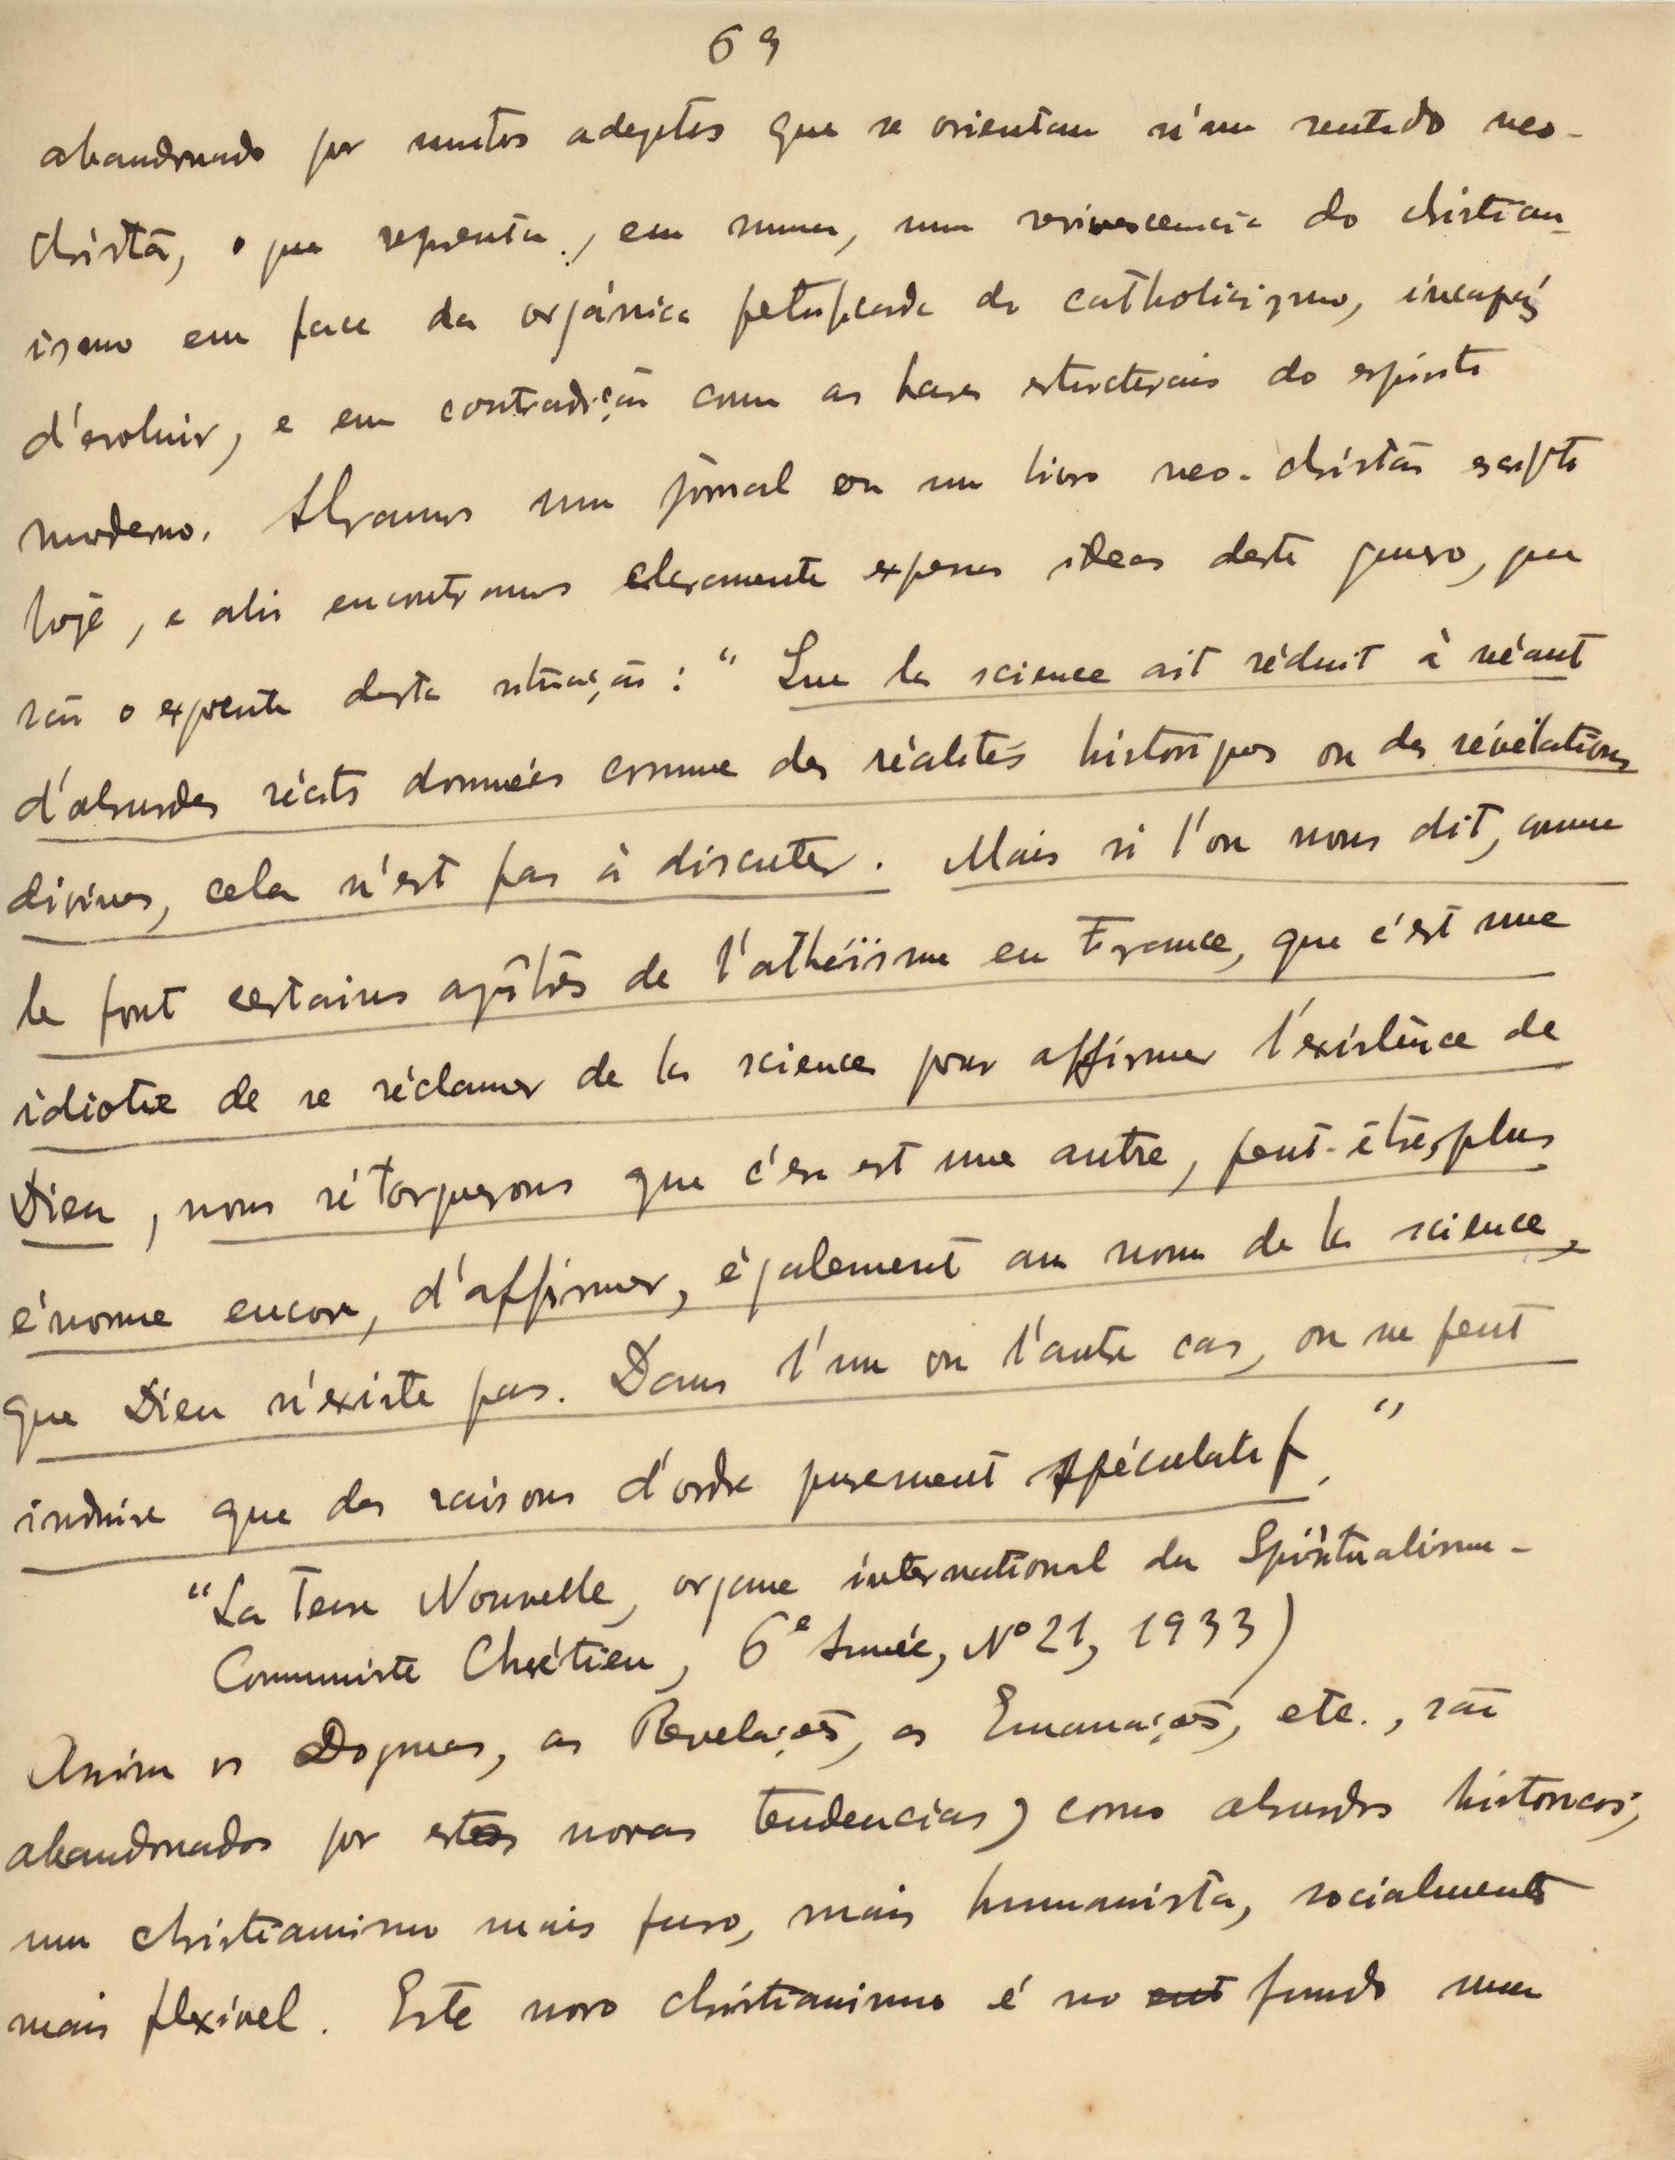 69
abandonado por muitos adeptos que se orientam n'um sentido neo-
christão, o que representa, em summa, uma revivescencia do christian-
ismo em face da orgánica petrificada do catholicismo, incapáz
d'evoluir, e em contradição com as bases estructurais do espirito
moderno. Abramos um jornal ou um livro neo-christão escripto
hoje, e ahi encontramos claramente expressas ideas deste genero, que
são o expoente desta situação: "Que la science ait réduit à néant
d'absurdes récits données comme des réalités historiques ou des révélations
divines, cela n'est pas à discuter. Mais si l'on nous dit, comme
le font certains apôtres de l'athéïsme en France, que c'est une
idiotie de se réclamer de la science pour affirmer l'existence de
Dieu, nous rétorquerons que c'en est une autre, peut-être, plus
énorme encore, d'affirmer, également au nom de la science,
que Dieu n'existe pas. Dans l'un ou l'autre cas, on ne peut
induire que des raisons d'ordre purement spéculatif."
"La Terre Nouvelle, organe international du Spiritualisme-
Communiste Chrétien, 6e Année, Nº 21, 1933)
Assim os Dogmas, as Revelações, as Emanações, etc., são
abandonados por estas novas tendencias, como absurdos historicos;
um christianismo mais puro, mais humanista, socialmente
mais flexível. Este novo christianismo é no fundo uma